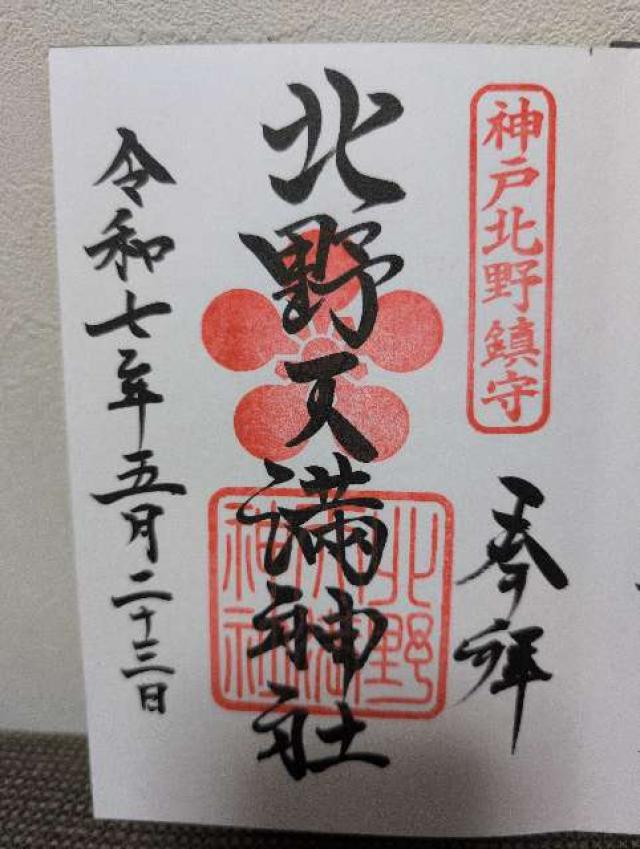 神戸北野鎮守
奉拝
北野天満神社
北野
天満
神社
令和七年五月二十三日